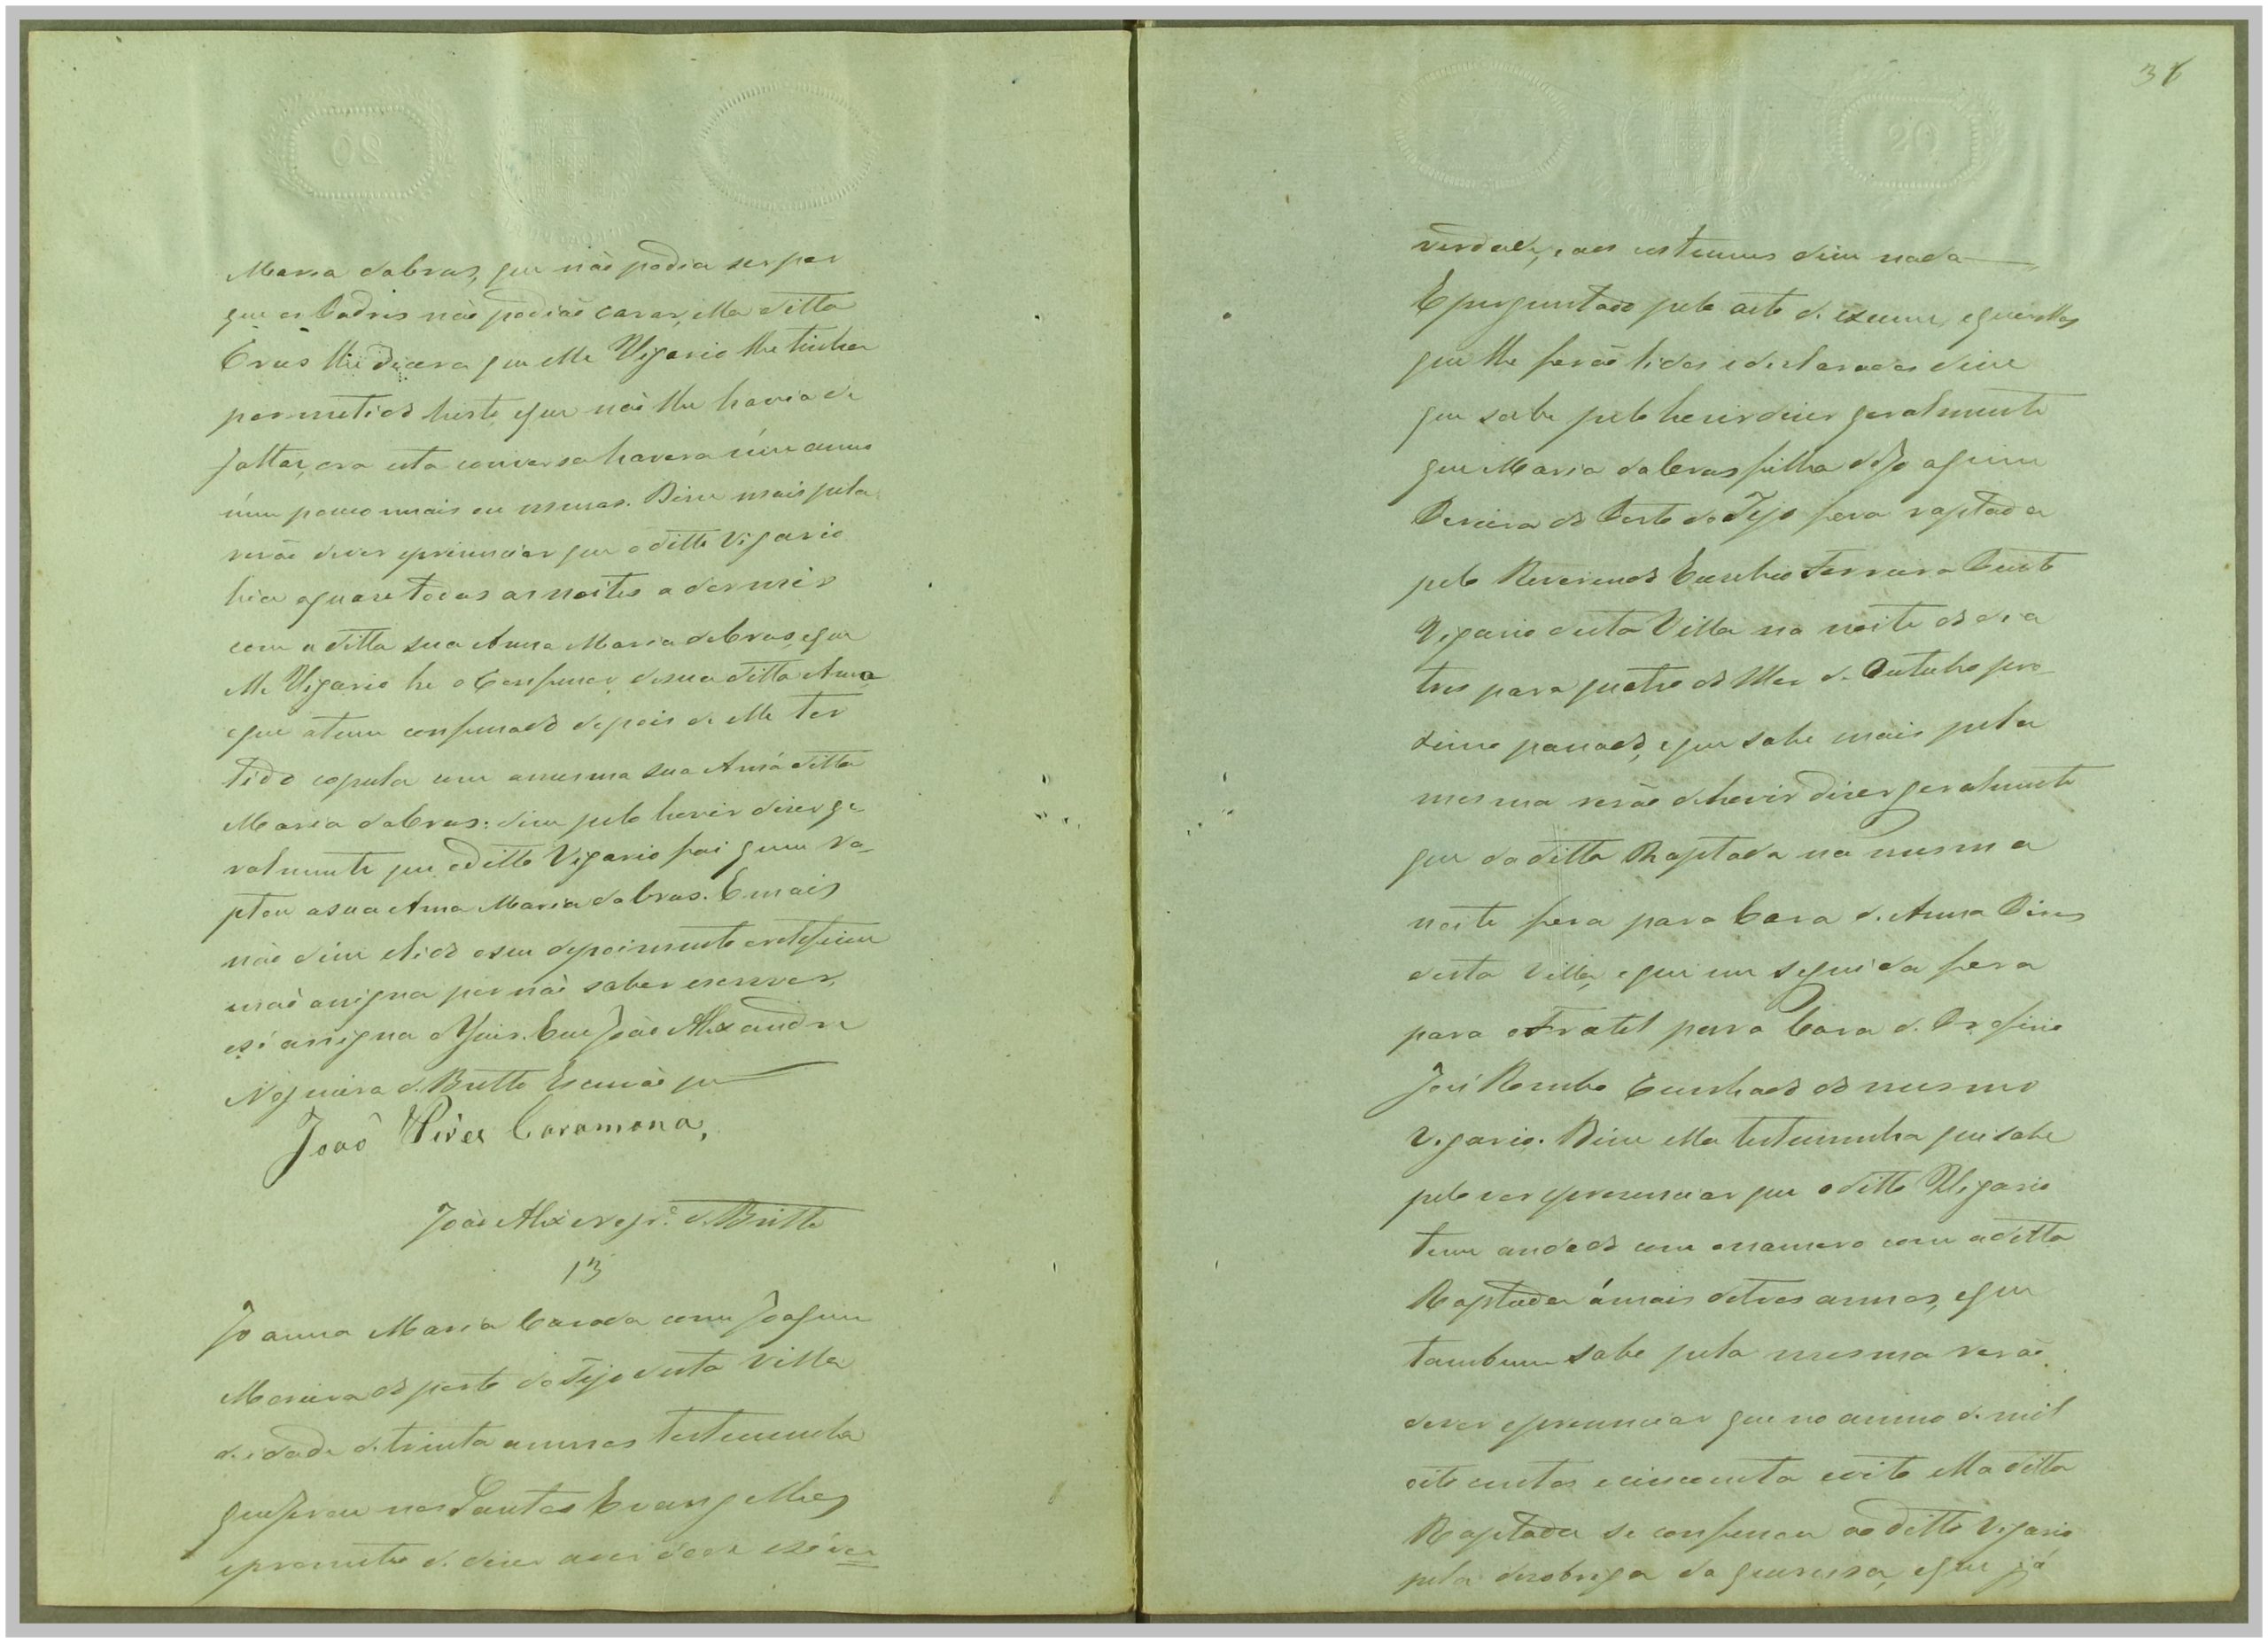 Maria da Crus, que não podia ser por
que os Padres não podião casar, ella ditta
Crus lhe dicera que elle Vigario lhe tinha
permetido histo, e que não lhe havia de
faltar, ora esta conversa havera úm anno
úm pouco mais ou menos. Disse mais pela
resão de ver e prisenciar que o ditto Vigario
hia a quase todas as noites a dormir
com a ditta sua Ama Maria da Crus, e que
elle Vigario he o Confessor de sua ditta Ama
e que a tem confessado depois de elle ter
tido copula com a mesma sua Ama ditta
Maria da Crus: disse pelo huvir diser ge
ralmente que o ditto Vigario foi quem ra-
ptou a sua Ama Maria da Crus. E mais
não disse e lido o seu depoimento o retefecou
não assigna por não saber escrever,
e só assigna o Juis. Eu João Alexandre
Nogueira de Britto Escrivão que
João Pires Caramona,
João Alexe Nogra. de Britto
13
Joanna Maria Casada com Joaquim
Moreira do porto do Tejo desta Villa
de idade de trinta annos testemunha
que jurou nos Santos Evangelhos
e prometeo de diser a verdade e só ver
36
verdade, e aos costumes disse nada
E perguntado pelo auto de exame, e quesittos
que lhe forão lidos e declarados disse
que sabe pelo huvir diser geralmente
que Maria da Crus filha de Joaquim
Pereira do Porto do Tejo fora raptada
pelo Reverendo Eusebio Ferreira Couto
Vigario desta Villa na noite do dia
tres para quatro do Mes de Outubro pro-
ximo passado, e que sabe mais pela
mesma resão de huvir diser geralmente
que da ditta Raptada na mesma
noite fora para Casa de Anna Pires
desta Villa, e que em seguida fora
para o Fratel para Casa de Porfirio
José Rombo Cunhado do mesmo
Vigario. Disse ella testemunha que sabe
pelo ver e presenciar que o ditto Vigario
tem andado com o namoro com a ditta
Raptada á mais de tres annos, e que
tambem sabe pela mesma resão
de ver e presenciar que no anno de mil
oito centos e cincoenta e oito ella ditta
Raptada se confessou ao ditto Vigario
pela desobriga da quaresma, e que já